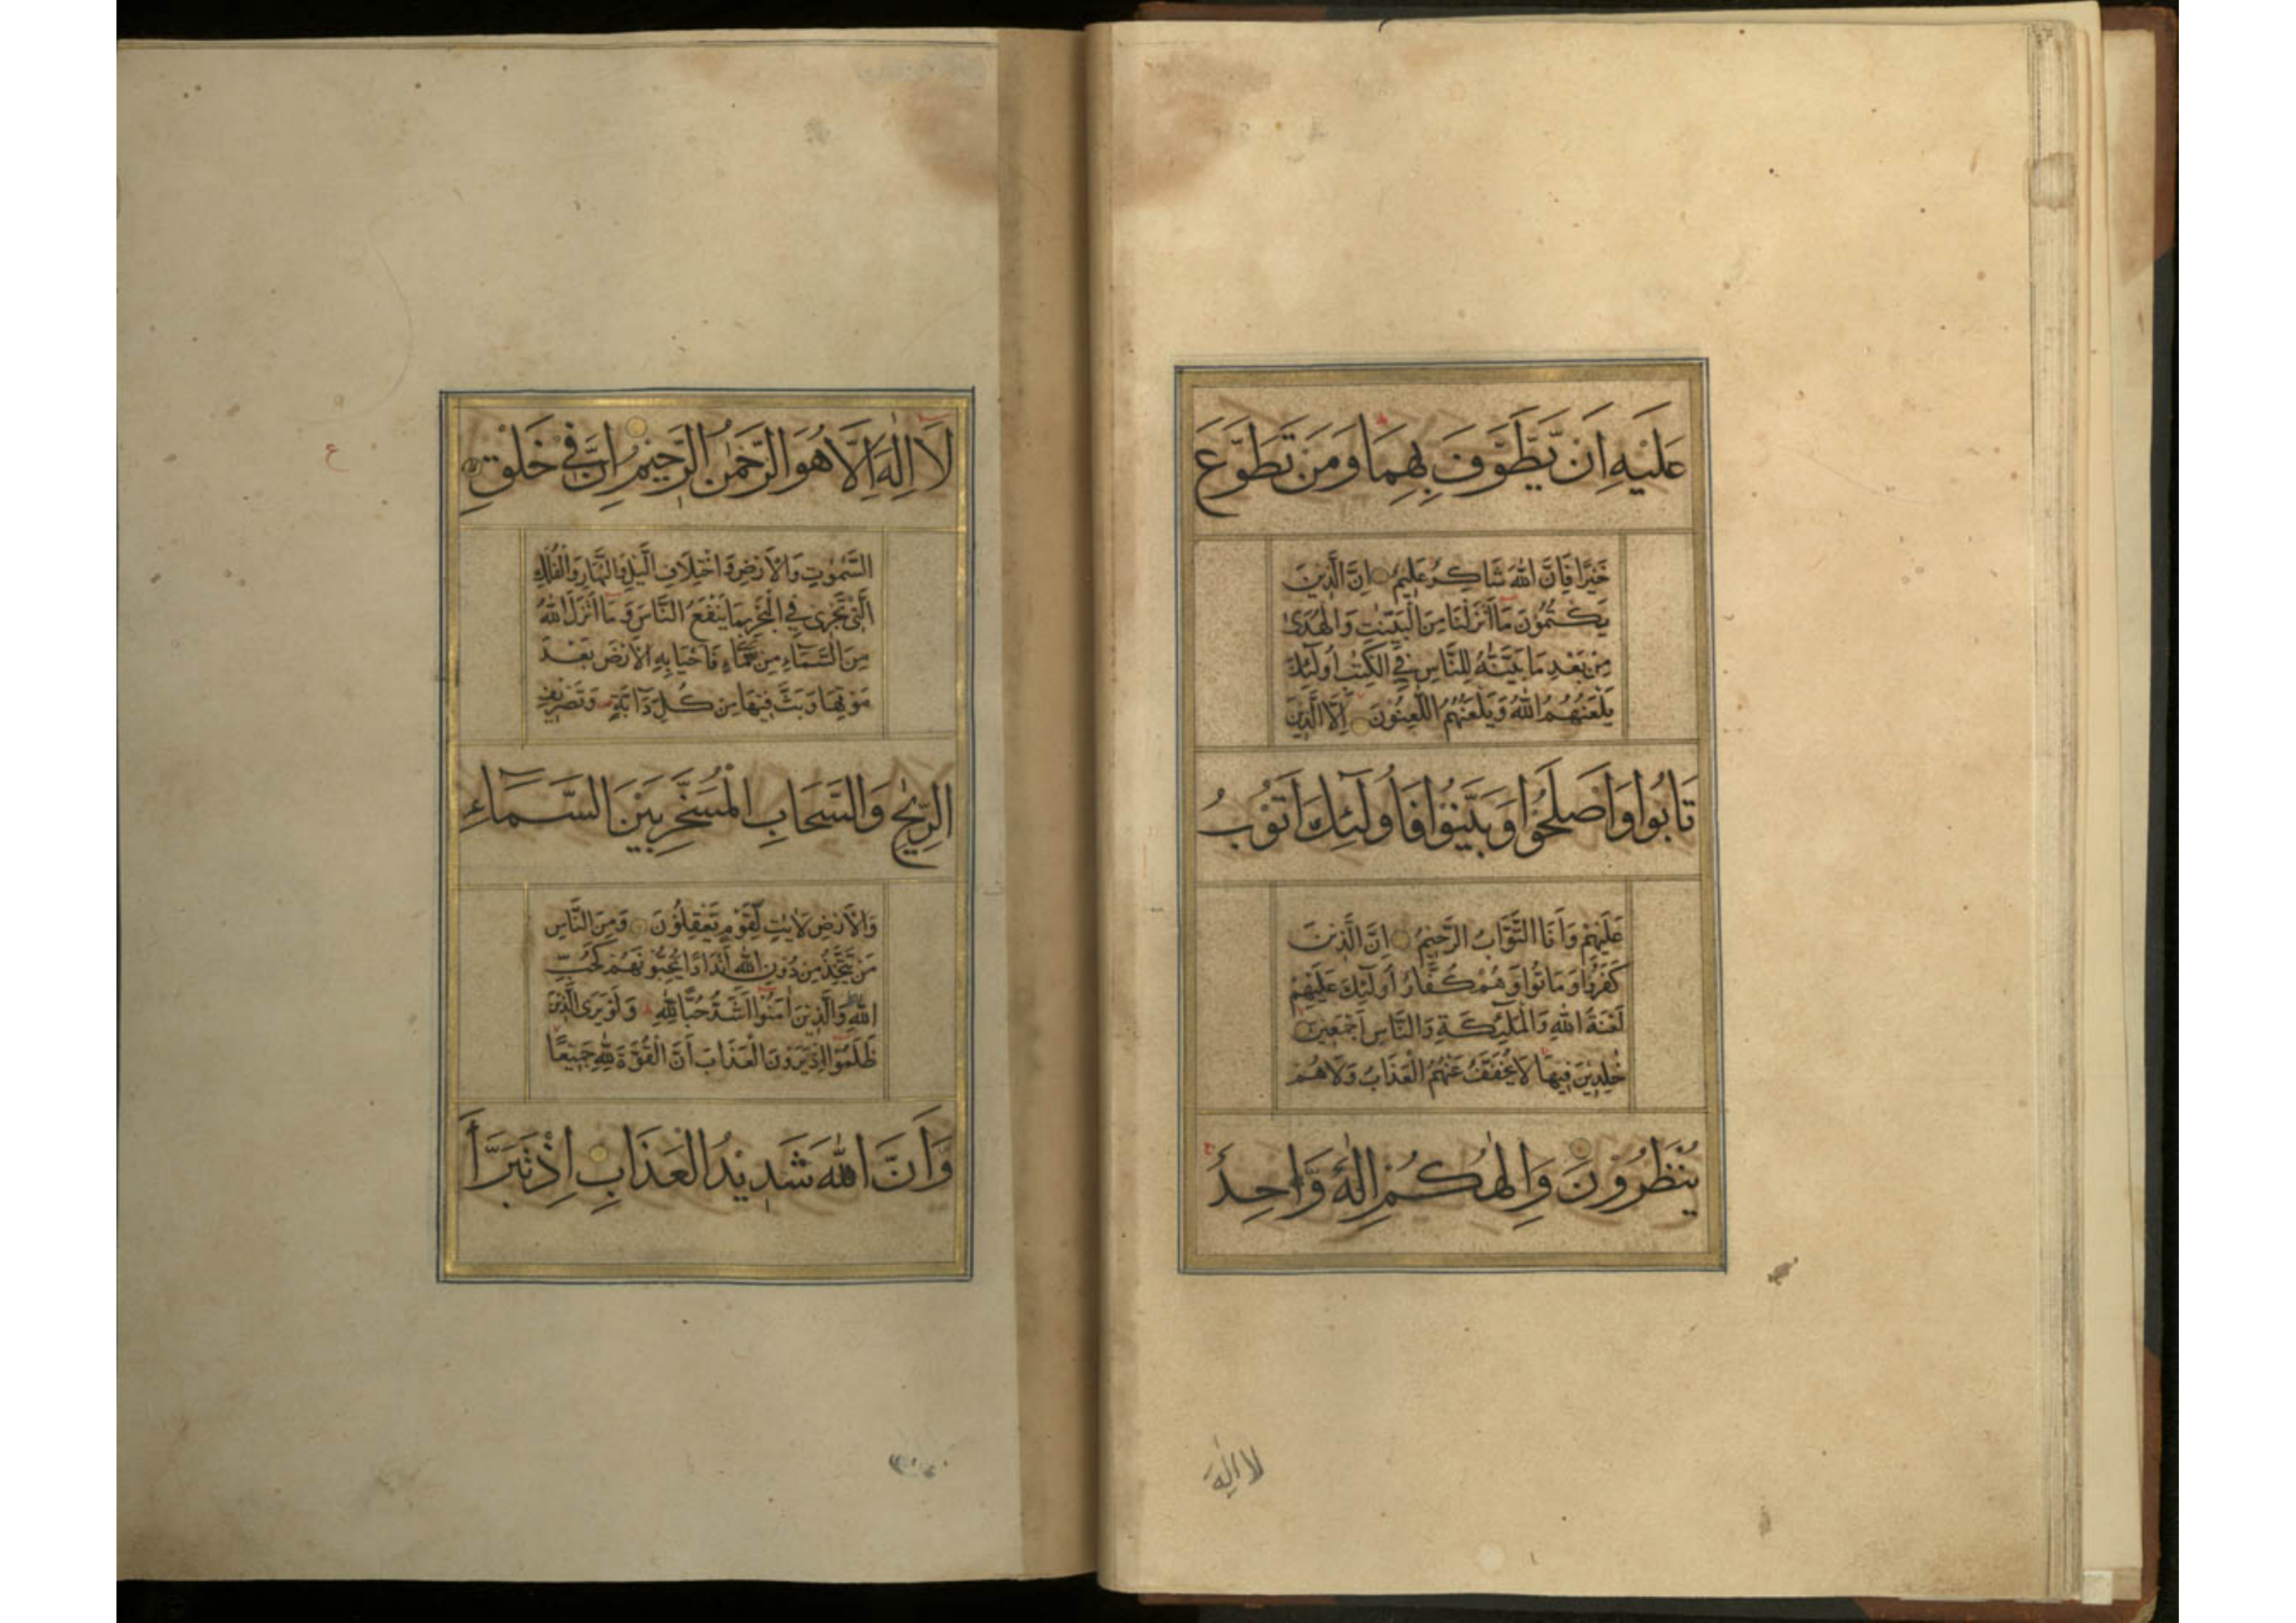 عَلَيْهِ اَنْ يَطَّوَّفَ بِهِمَا وَمَنْ تَطَوَّعَ
خَيْرًا فَاِنَّ اللهَ شَاكِرٌ عَلِيمٌ اِنَّ الَّذِينَ
يَكْتُمُونَ مَا اَنْزَلْنَا مِنَ الْبَيِّنٰتِ وَالْهُدٰى
مِنْ بَعْدِ مَا بَيَّنّٰهُ لِلنَّاسِ فِي الْكِتٰبِ اُولٰئِكَ
يَلْعَنُهُمُ اللهُ وَيَلْعَنُهُمُ اللّٰعِنُونَ اِلَّا الَّذِينَ
تَابُوا وَاَصْلَحُوا وَبَيَّنُوا فَاُولٰئِكَ اَتُوبُ
عَلَيْهِمْ وَاَنَا التَّوَّابُ الرَّحِيمُ اِنَّ الَّذِينَ
كَفَرُوا وَمَاتُوا وَهُمْ كُفَّارٌ اُولٰئِكَ عَلَيْهِمْ
لَعْنَةُ اللهِ وَالْمَلٰئِكَةِ وَالنَّاسِ اَجْمَعِينَ
خٰلِدِينَ فِيهَا لَا يُخَفَّفُ عَنْهُمُ الْعَذَابُ وَلَا هُمْ
يُنْظَرُونَ وَاِلٰهُكُمْ اِلٰهٌ وَّاحِدٌ
لا اله
لَا اِلٰهَ اِلَّا هُوَ الرَّحْمٰنُ الرَّحِيمُ اِنَّ فِي خَلْقِ
ع
السَّمٰوٰتِ وَالْاَرْضِ وَاخْتِلَافِ الَّيْلِ وَالنَّهَارِ وَالْفُلْكِ
الَّتِي تَجْرِي فِي الْبَحْرِ بِمَا يَنْفَعُ النَّاسَ وَمَا اَنْزَلَ اللهُ
مِنَ السَّمَاءِ مِنْ مَّاءٍ فَاَحْيَا بِهِ الْاَرْضَ بَعْدَ
مَوْتِهَا وَبَثَّ فِيهَا مِنْ كُلِّ دَابَّةٍ وَتَصْرِيفِ
الرِّيٰحِ وَالسَّحَابِ الْمُسَخَّرِ بَيْنَ السَّمَاءِ
وَالْاَرْضِ لَاٰيٰتٍ لِّقَوْمٍ يَّعْقِلُونَ وَمِنَ النَّاسِ
مَنْ يَتَّخِذُ مِنْ دُونِ اللهِ اَنْدَادًا يُحِبُّونَهُمْ كَحُبِّ
اللهِ وَالَّذِينَ اٰمَنُوا اَشَدُّ حُبًّا لِلّٰهِ وَلَوْ يَرَى الَّذِينَ
ظَلَمُوا اِذْ يَرَوْنَ الْعَذَابَ اَنَّ الْقُوَّةَ لِلّٰهِ جَمِيعًا
وَّاَنَّ اللهَ شَدِيدُ الْعَذَابِ اِذْ تَبَرَّاَ